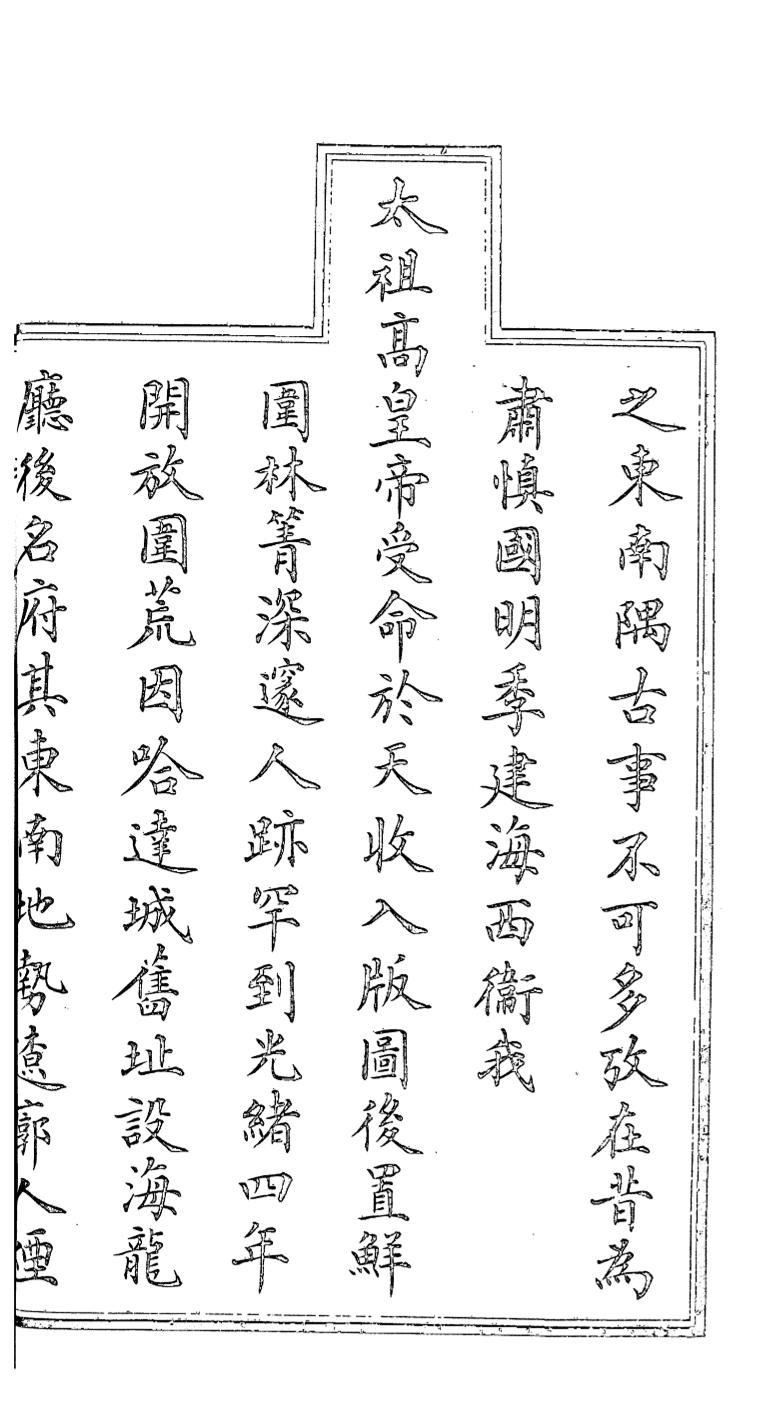 之東南隅古事不可多攷在昔為
肅慎國明季建海西衞我
太祖高皇帝受命於天收入版圖後置鮮
圍林箐深邃人跡罕到光緒四年
開放圍荒因哈達城舊址設海龍
廳後名府其東南地勢遼廓人煙